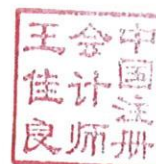 中国注册
会计师
王佳良